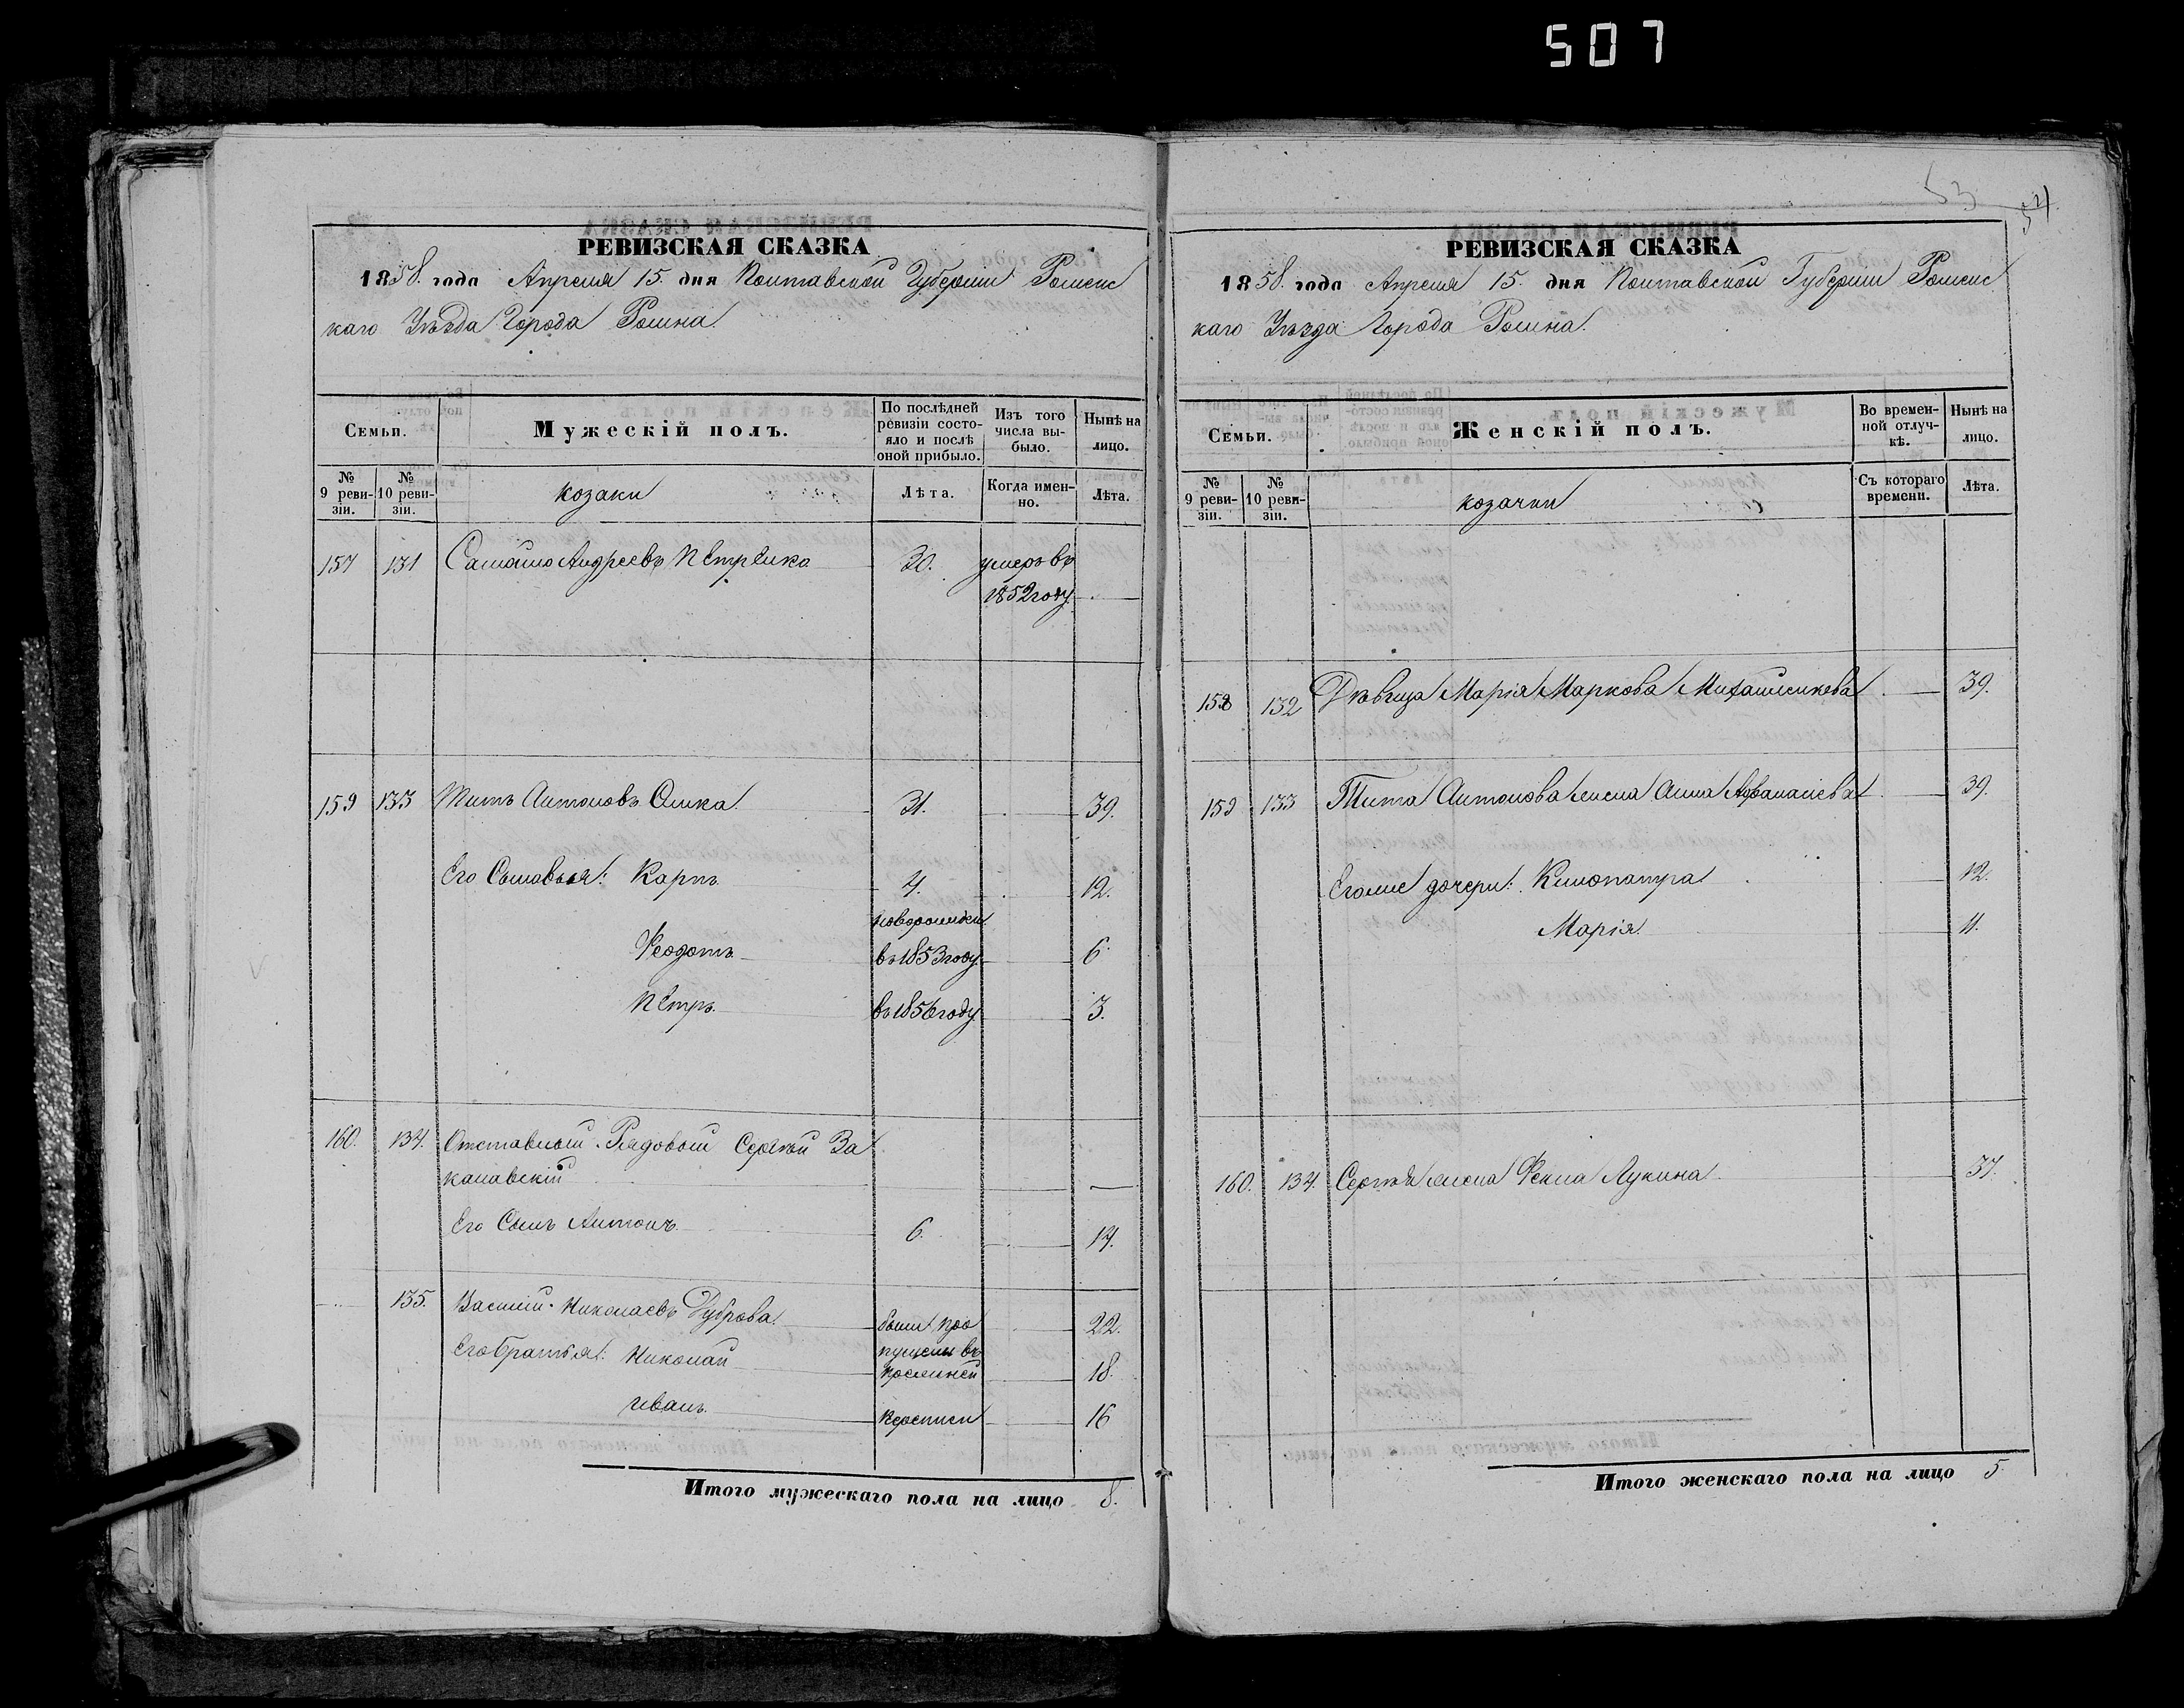 507
53
54
РЕВИЗСКАЯ СКАЗКА
1858. года Апреля 15. дня Полтавской Губерніи Роменс
каго Уѣзда Города Ромна.
Семьи.
Мужескій полъ.
По послѣдней ревизіи состояло и послѣ оной прибыло.
Изъ того числа выбыло.
Нынѣ на лицо.
№ 9 ревизіи.
№ 10 ревизіи.
козаки
Лѣта.
Когда именно.
Лѣта.
157 131 Самойло Андреевъ Петренко 30. умеръ въ
1852 году —
159 133 Титъ Антоновъ 31. 39.
Его Сыновья: Карпъ 4. 12.
новорожден
Феодотъ въ 1853 году 6
Петръ въ 1856 году 3.
160. 134. Отставной Рядовой Сергѣй За
калавскій —
Его Сынъ Антонъ 6. 14.
135. Василій Николаевъ Дуброва были про 22.
пущены въ
Его братья: Николай 18.
Иванъ переписи 16
Итого мужескаго пола на лицо 8.
РЕВИЗСКАЯ СКАЗКА
1858. года Апреля 15. дня Полтавской Губерніи Роменс
каго Уѣзда Города Ромна.
Семьи.
Женскій полъ.
Во временной отлучкѣ.
Нынѣ на лицо.
№ 9 ревизіи.
№ 10 ревизіи.
козачки
Съ котораго времени.
Лѣта.
158 132 Дѣвица Марія Маркова — 39.
159 133 Тита Антонова жена Анна Афанасіева 39.
Его же дочери: Клиопатра 12.
Марія 11.
160. 134. Сергѣя жена Фекла Лукина 37.
Итого женскаго пола на лицо 5.